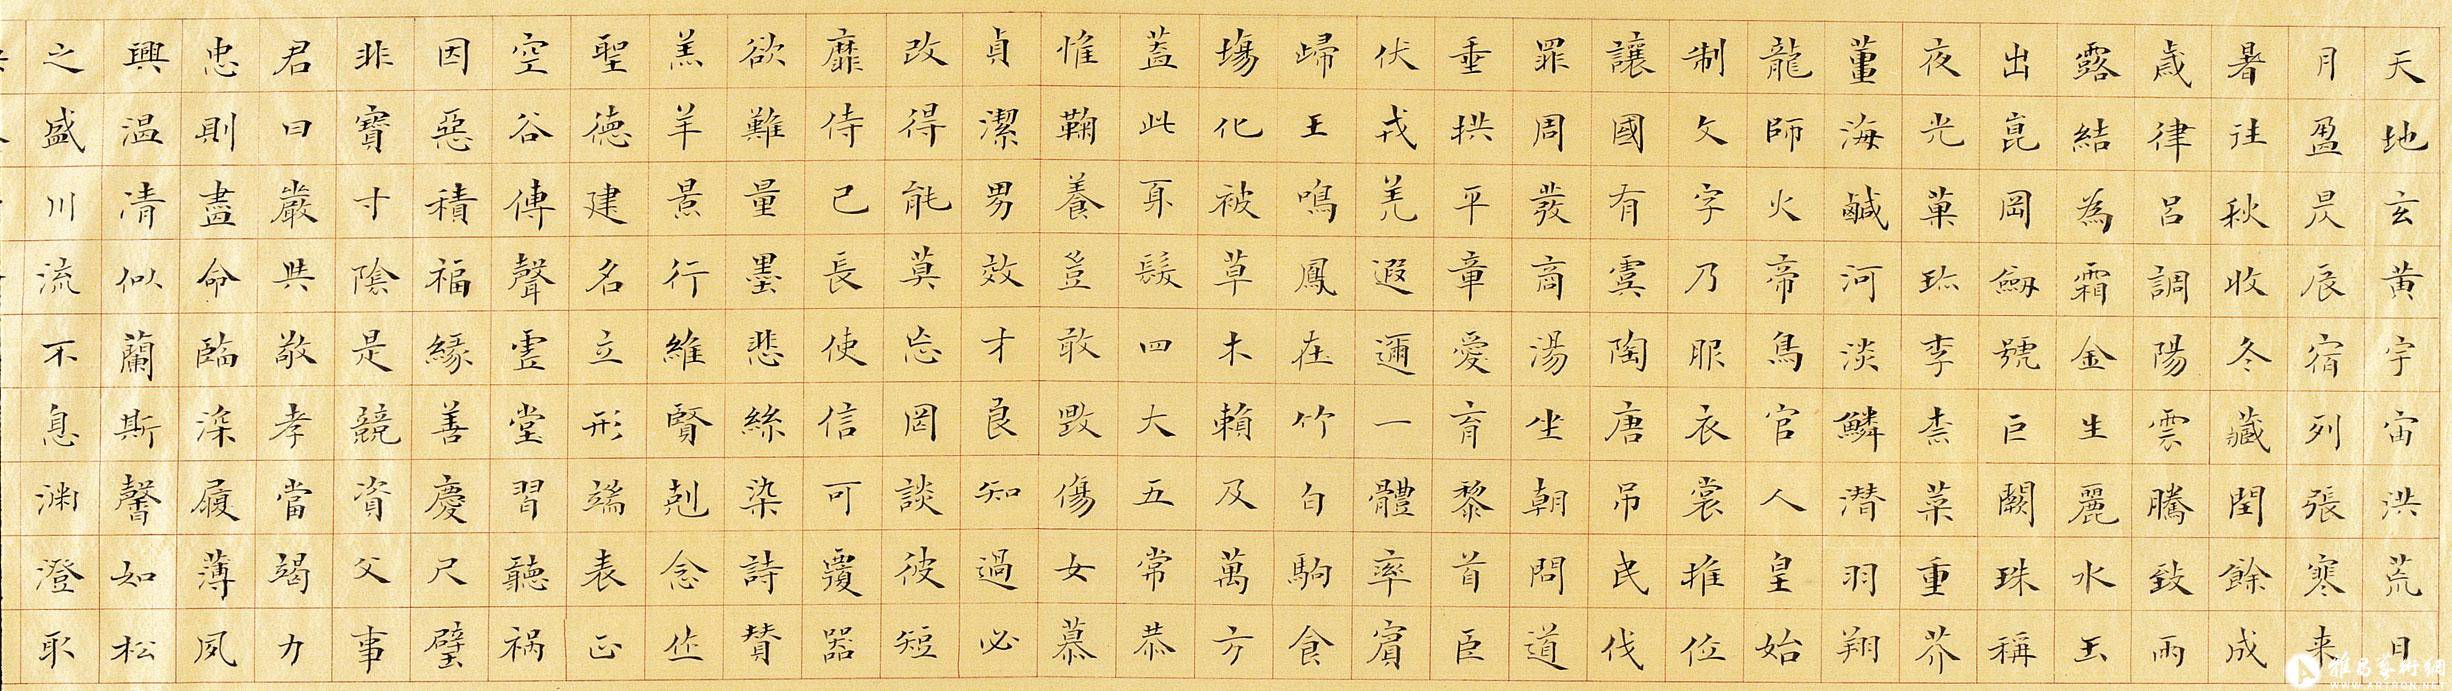 天地玄黄宇宙洪荒日
月盈昃辰宿列張寒来
暑往秋收冬藏閏餘成
歳律呂調陽雲騰致雨
露結為霜金生麗水玉
出崑岡劒號巨闕珠稱
夜光菓珎李柰菜重芥
薑海鹹河淡鱗潜羽翔
龍師火帝鳥官人皇始
制文字乃服衣裳推位
讓國有虞陶唐吊民伐
罪周發商湯坐朝問道
垂拱平章愛育黎首臣
伏戎羌遐邇一體率賓
歸王鳴鳳在竹白駒食
場化被草木賴及萬方
蓋此身髮四大五常恭
惟鞠養豈敢毀傷女慕
貞潔男效才良知過必
改得能莫忘罔談彼短
靡恃己長使信可覆器
欲難量墨悲絲染詩賛
羔羊景行維賢剋念作
聖德建名立形端表正
空谷傳聲虚堂習聽禍
因惡積福緣善慶尺璧
非寶寸陰是競資父事
君曰嚴與敬孝當竭力
忠則盡命臨深履薄夙
興温清似蘭斯馨如松
之盛川流不息淵澄取
雅昌藝術網
WWW.ARTRON.NET